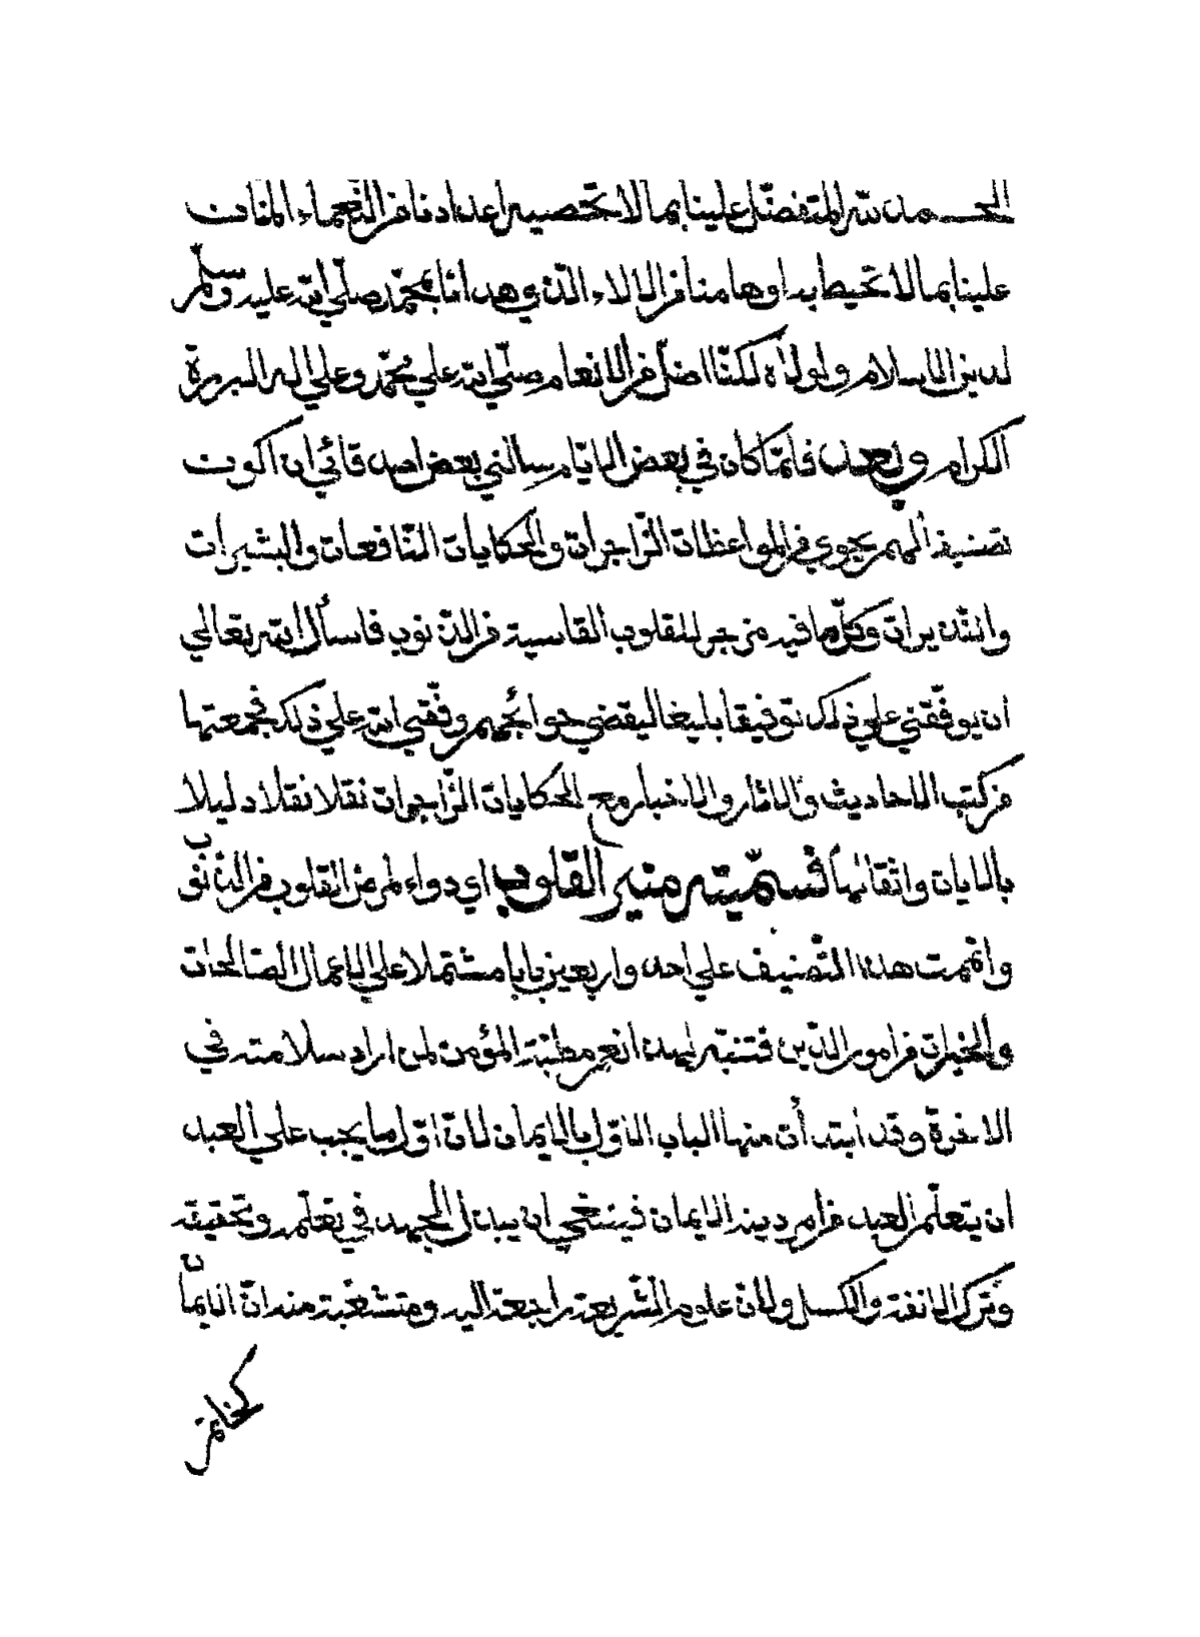 الحمد لله المتفضّل علينا بما لا تحصيه اعدادنا من النّعماء المنّان
علينا بما لا تحيط به اوهامنا من الالاء الّذي هدانا بمحمّد صلّي الله عليه وسلّم
لدين الاسلام ولولاه لكنّا اضلّ من الانعام صلّي الله علي محمّد وعلي اله البررة
الكرام وبعد فلمّا كان في بعض الايّام سالني بعض اصدقائي ان اكون
تصنيف الهم يحوي من المواعظات الزّاجرات والحكايات النّافعات والبشيرات
والنّذيرات وكلّ ما فيه مزجر للقلوب القاسية من الذّنوب فاسأل الله تعالي
ان يوفّقني علي ذلك توفيقا بليغا ليقضي حوائجهم وفّقني الله علي ذلك فجمعتها
من كتب الاحاديث والاثار والاخبار مع الحكايات الزّاجرات نقلا نقلا دليلا
بالايات واتقانها فسمّيته منير القلوب اي دواء لمرض القلوب من الذّنوب
واتممت هذا التّصنيف علي احد واربعين بابا مشتملا علي الاعمال الصّالحات
والخيرات من امور الدّين فتنبّه لهذا نعم مطيّة المؤمن لمن اراد سلامته في
الاخرة وقد ابتدأت منها الباب الاوّل بالايمان لانّ اوّل ما يجب علي العبد
ان يتعلّم العبد من امر دينه الايمان فينبغي ان يبذل الجهد في تعلّمه وتحقيقه
وترك الانفة والكسل ولانّ علوم الشّريعة راجعة اليه ومتشعّبة منه انّ الايمان
كخاتم